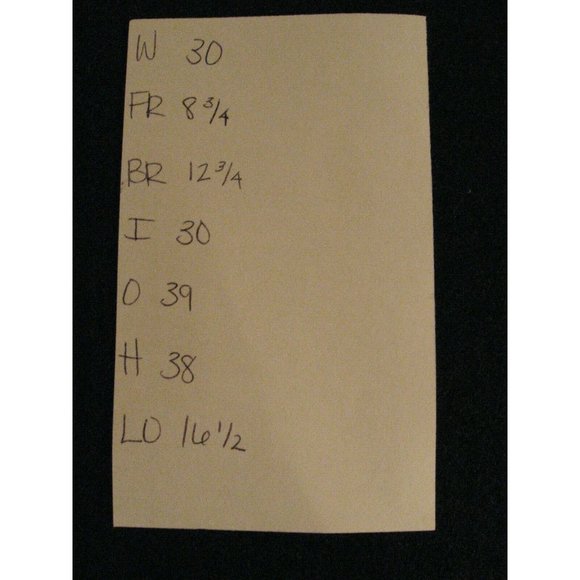 W 30
FR 8 3/4
BR 12 3/4
I 30
O 39
H 38
LO 16 1/2